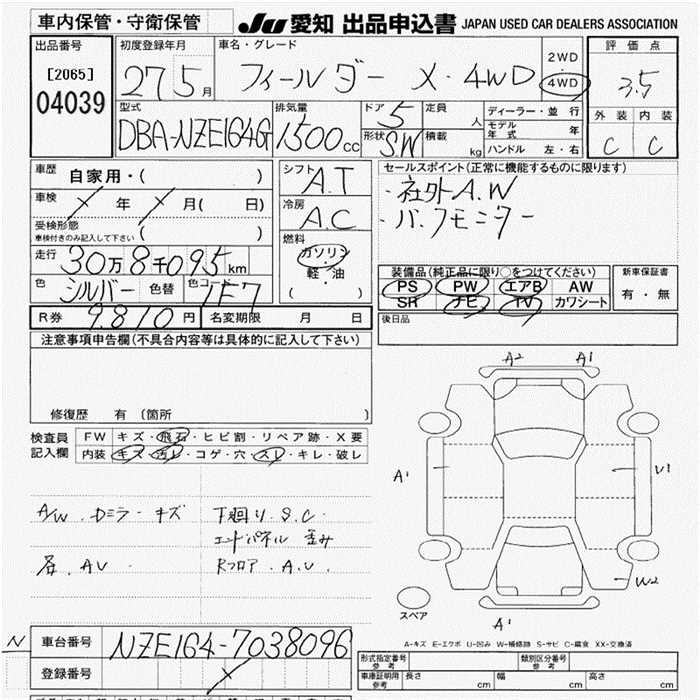 車内保管・守衛保管
JU 愛知 出品申込書 JAPAN USED CAR DEALERS ASSOCIATION
出品番号
[2065]
04039
初度登録年月
27 5月
車名・グレード
フィールダー X・4WD
2WD
4WD
評価点
3.5
外装 内装
C C
型式
DBA-NZE164G
排気量
1500cc
ドア 5
形状 SW
定員 人
積載 kg
ディーラー・並行
モデル年式 年
ハンドル 左・右
車歴 自家用・( )
車検 年 月( 日)
受検形態
車検付きのみ記入して下さい ( )
走行 30万8千095km
色 シルバー 色替 色コード 1F7
シフト A.T
冷房 A.C
燃料
ガソリン
軽・油
( )
セールスポイント(正常に機能するものに限ります)
・社外A.W
・バックモニター
装備品(純正品に限り○をつけてください)
PS PW エアB AW
SR ナビ TV カワシート
新車保証書
有・無
R券 9,810円 名変期限 月 日
後日品
注意事項申告欄(不具合内容等は具体的に記入して下さい)
修復歴 有 〔箇所 〕
検査員
記入欄
FW キズ・飛石・ヒビ割・リペア跡・X要
内装 キズ・汚レ・コゲ・穴・スレ・キレ・破レ
A/W. Dミラー キズ
下廻り.S.C.
エンドパネル 歪み
Rフロア.A.U.
A2 A1
A1
U1
W2
A1
スペア
A-キズ E-エクボ U-凹み W-補修跡 S-サビ C-腐食 XX-交換済
N
車台番号 NZE164-7038096
登録番号
形式指定番号
参考
類別区分番号
参考
車庫証明用
参考
長さ cm 幅 cm 高さ cm